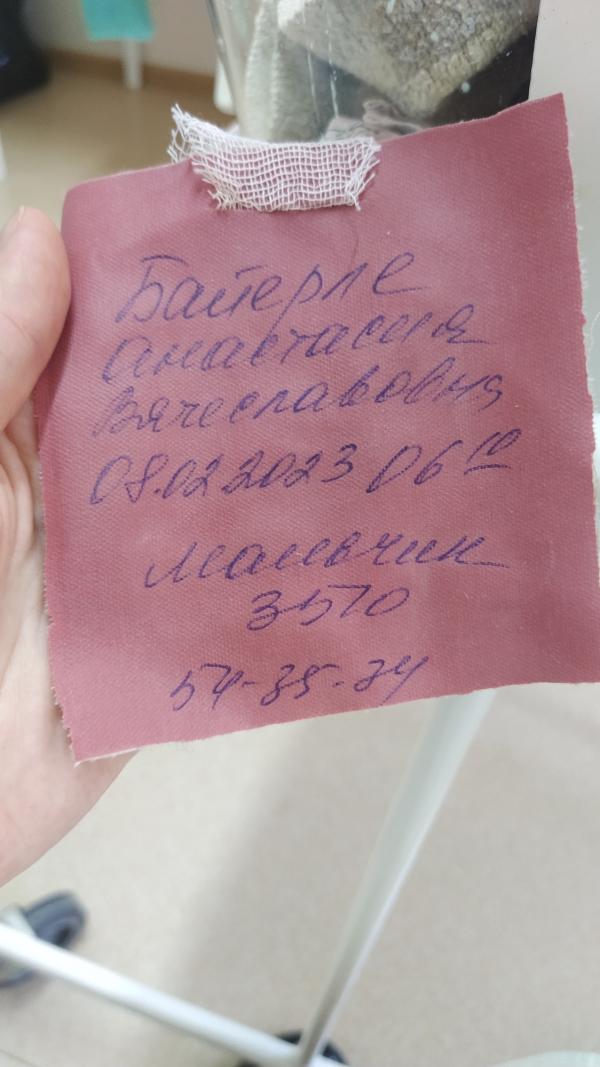 Байерле
Анастасия
Вячеславовна
08.02 2023 06 10
Мальчик
3570
54-35-34